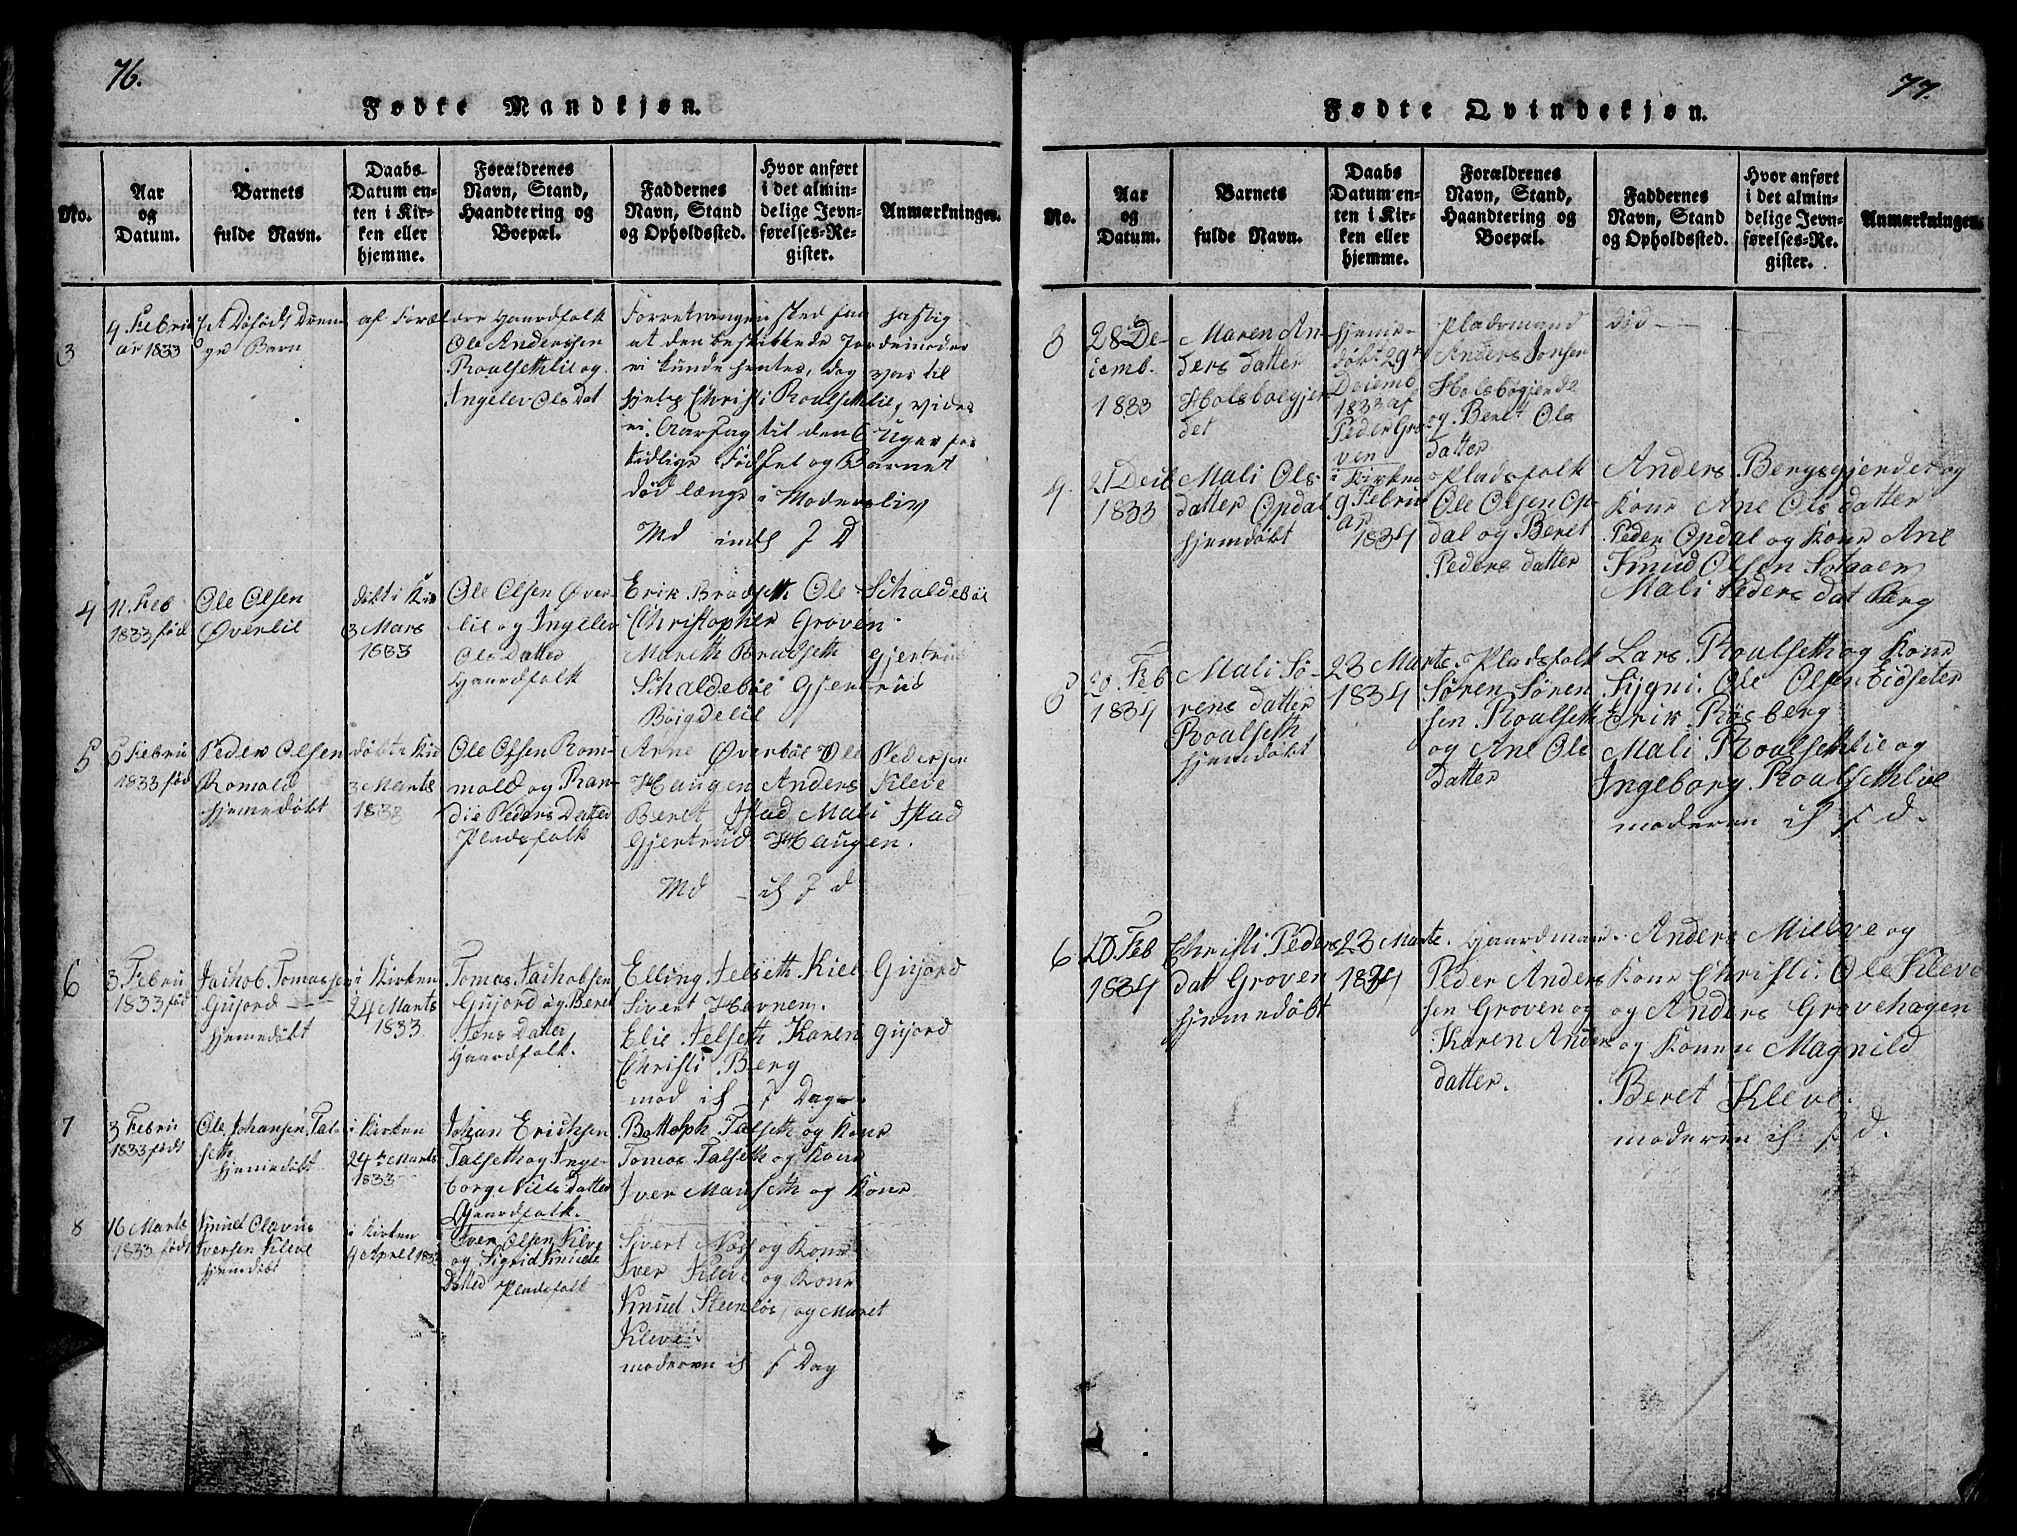 76.
Fødte Mandkjøn.
No.
Aar
og
Datum.
Barnets
fulde Navn.
Daabs-
Datum en-
ten i Kir-
ken eller
hjemme.
Forældrenes
Navn, Stand,
Haandtering og
Boepæl.
Faddernes
Navn, Stand
og Opholdssted.
Hvor anført
i det almin-
delige Jevn-
førelses-Re-
gister.
Anmærkninger.
3
4 Febru
ar 1833
Et Døfødt Dren-
ge Barn
af Foræl
dre Gaardfolk
Ole Anderssen
Roalsethlie og
Ingelev Ols Dat
Forretningen sked saa hastig
at den beskikkede Jordemoder
ei kunde hentes, dog var til
hjelp Christi Roalsethlie, vides
ei Aarsag til den 6 Uger for
tidlige Fødsel og Barnet
død længe i Moders liv
Md inds 7 D
4
11. Feb
1833 fød
Ole Olsen
Øverlie
døbt i Kir
3 Mars
1833
Ole Olsen Øver
lie og Ingelev
Ols Datter
Gaardfolk
Erik Bradseth Ole Schaldebøe
Christopher Groven
Mareth Bradseth Gjertrud
Schaldebøe Gjertrud
Boigdelie
5
5 Febru
1833 fød
Peder Olsen
Romald
hjemedøbt
døbt i Kir
3 Marts
1833
Ole Olsen Rom-
mold og Ran-
die Peders Datter
Pladsfolk
Arne Øverbøe Ole Pedersen
Haugen Anders Kleve
Beret Istad Mali Istad
Gjertrud Haugen.
Md – is 7 d
6
3 Febru
1833 fød
Jachob Tomassen
Gujord
hjemedøbt
i Kirken
24 Marts
1833
Tomas Jachobsen
Gujord og Beret
Jens Datter
Gaardfolk.
Elling Jelseth Kiel Gujord
Sivert Havnen.
Elie Jelseth Karen Gujord
Christi Berg
mod is 7 Dage.
7
3 Febru
1833 født
Ole Johansen Tal-
seth
hjemedøbt
i Kirken
24 Marts
1833
Johan Erichsen
Talseth og Inge-
borg Niels Datter
Gaardfolk.
Bottolph Talseth og Kone
Tomas Talseth og Kone
Iver Manseth og Kone
8
16 Marts
1833 født
Knud Olavus
Iversen Kleve
hjemedøbt
i Kirken
4 Aprel 1833
Iver Olsen Kleve
og Sigrid Knuds
Datter Pladsfolk
Sivert Næss og Kone
Iver Kleve og Kone
Knud Steenløs, og Maret
Kleve.
moderen is 7 Dag
77.
Fødte Qvindekjøn.
No.
Aar
og
Datum.
Barnets
fulde Navn.
Daabs
Datum en-
ten i Kir-
ken eller
hjemme.
Forældrenes
Navn, Stand,
Haandtering og
Boepæl.
Faddernes
Navn, Stand
og Opholdssted.
Hvor anført
i det almin-
delige Jevn-
førelses-Re-
gister.
Anmærkninger.
3
28 De-
cemb.
1833
Maren An-
ders datter
Holsbøegjer
det
hjeme-
døbt 29
Deiemb
1833 af
Peder Gro
ven
Pladsmand
Anders Jonsen
Holsbøgjerde
og Beret Ols
datter
død
4.
21 Deib
1833
Mali Ols-
datter Opdal
hjemdøbt
i Kirken
9 Febru
ar
1834
Pladsfolk
Ole Olsen Op-
dal og Beret
Peders datter
Anders Bergsgjerdet og
Kone Ane Ols datter
Peder Opdal og Kone Ane
Knud Olsen Solaaen
Mali Peders dat Berg
5
20. Feb
1834
Mali Sø-
rens datter
Roalseth
hjemdøbt
23 Marts
1834
Pladsfolk
Søren Søren
sen Roalseth
og Ane Ole
datter
Lars Roalseth og Kone
Sygni. Ole Olsen Eidseter
Erik Røsberg
Mali Roalsethlie og
Ingeborg Roalsethlie
moderen is 7 d.
6
20 Feb
1834
Christi Peders
dat Groven
hjemedøbt
23 Marts
1834
Gaardmand
Peder Anders
sen Groven og
Karen Anders
datter.
Anders Mielve og
Kone Christi. Ole Kleve
og Anders Grovehagen
og Konen Magnild
Beret Kleve.
moderen is 7 d.